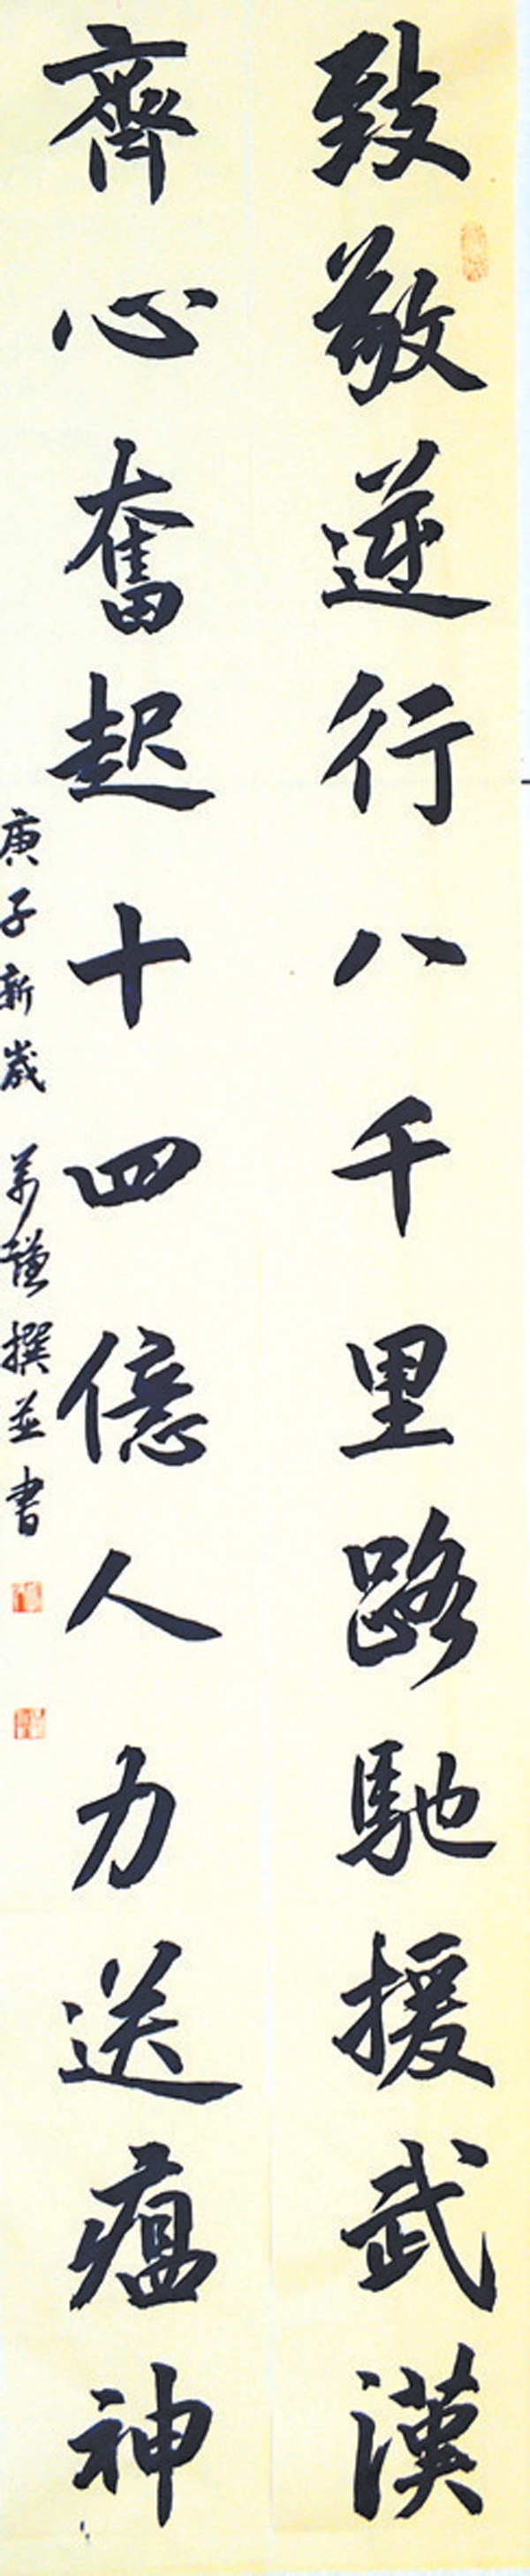 致敬逆行八千里路馳援武漢
齊心奮起十四億人力送瘟神
庚子新歲 萬謙撰並書